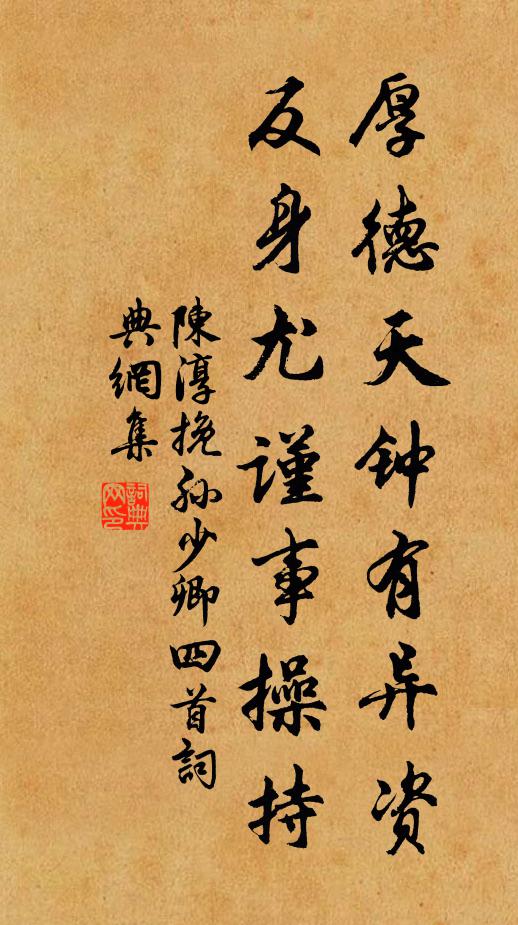 厚德天钟有异资
反身尤谨事操持
陳淳挽孙少卿四首詞
典網集
詞典網印